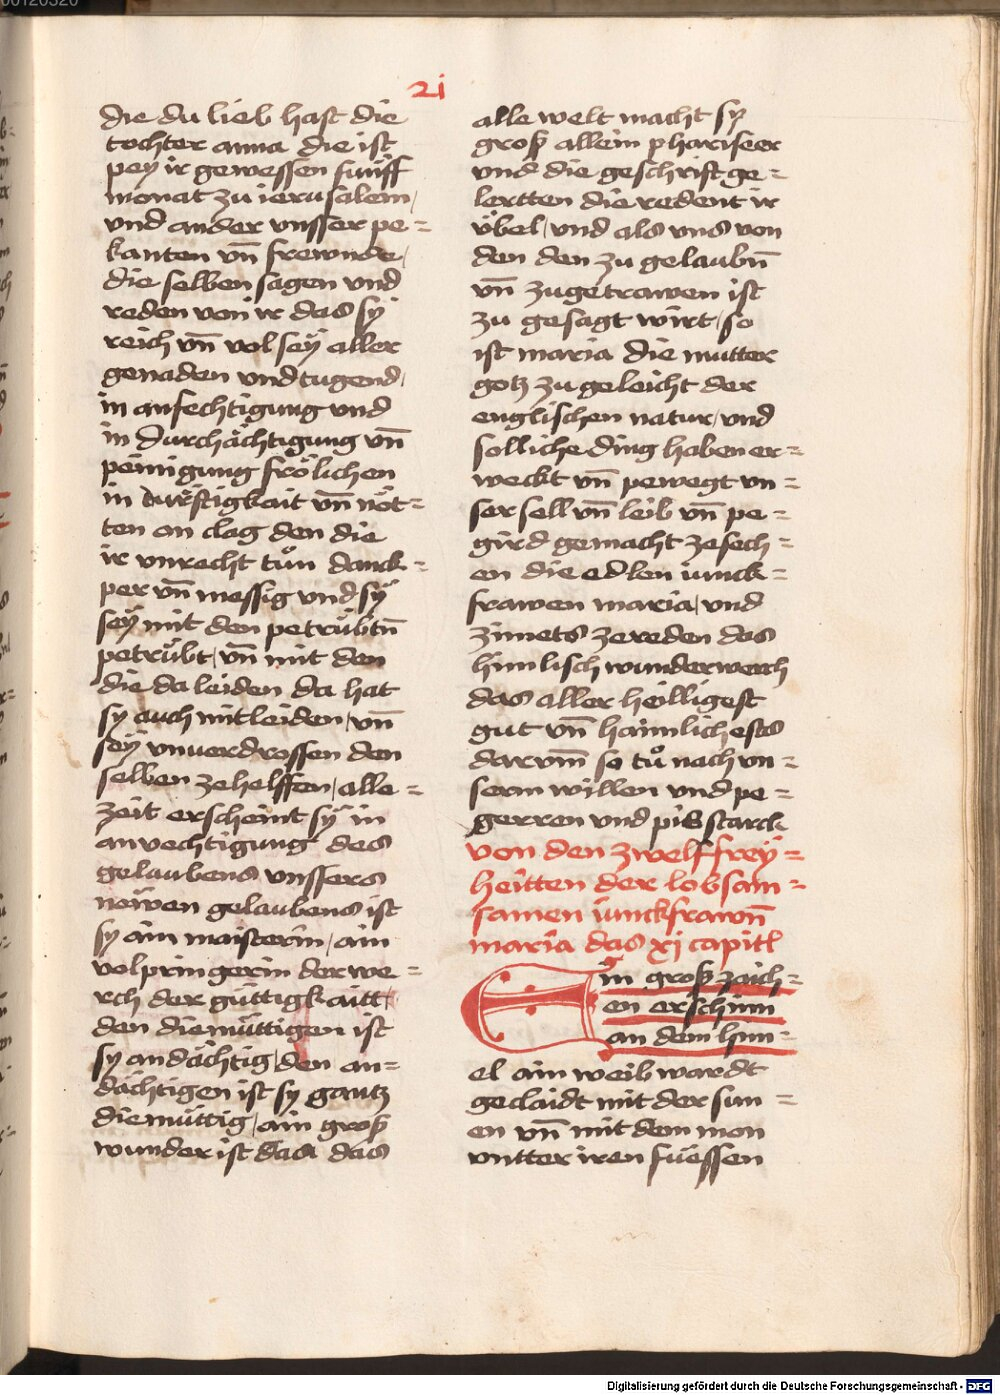 00120320
21
die du lieb hast die
tochter anna die ist
pey ir gewessen funff
monat zu ierusalem,
vnd ander vnsser pe=
kanten vn̄ frewnde,
die selben sagen vnd
reden von ir das sy
reich vn̄ vol seÿ aller
genaden vnd tugend,
in anfechtigung vnd
in durchächtigung vn̄
peinigung frölichen
in dürftigkait vn̄ nöt=
ten an clag den die
ir vnrecht tůn danck=
per vn̄ messig vnd sÿ
seÿ mit den petrübtn̄
petrübt, vn̄ mit den
die da leiden da hat
sy auch mitleiden, vn̄
seÿ vnuerdrossen den
selben zehelffen, alle=
zeit erscheint sÿ in
anvechtigung des
gelaubens vnssers
nöwen gelaubens ist
sy ain maisterin, ain
volpringerin der we=
rch der güttigkaitt,
den diemüttigen ist
sy andächtig, den an=
dächtigen ist sy gantz
diemüttig, ain groß
wunder ist das das
alle welt macht sy
groß allein phariseer
vnd die geschrift ge=
lertten die redent ir
übel, vnd als vns von
den den zu gelaubn̄
vn̄ zugetrawen ist
zu gesagt wirt, so
ist maria die mutter
gotz zu geleicht der
englischen natur, vnd
solliche ding haben er=
weckt vn̄ pewegt vn=
ser sell vn̄ leib vn̄ pe=
gird gemacht zesech=
en die edlen iunck=
frawen maria, vnd
zimets zereden das
himlisch wunderwerch
das aller heilligest
gut vn̄ haimlichests
darvm̄ so tů nach vn=
serm willen vnd pe=
gerren vnd pis starck
von den zwelf freÿ=
heitten der lobsam=
samen iunckfrawn̄
maria das xj capitl
Ein groß zaich=
en erschinn
an dem him=
el ain weib wardt
geclaidt mit der sun=
en vn̄ mit dem mon
vntter iren füessen
Digitalisierung gefördert durch die Deutsche Forschungsgemeinschaft - DFG